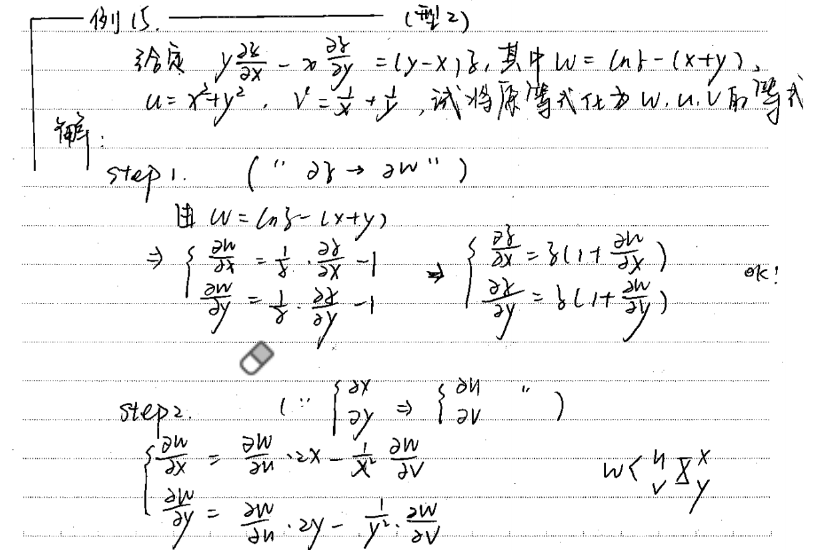 例15. (型2)
给定 y ∂z/∂x - x ∂z/∂y = (y-x)z, 其中 w = ln z - (x+y),
u = x²+y², v = 1/x + 1/y, 试将原等式化为 w, u, v 的等式
解:
step1. (" ∂z → ∂w ")
由 w = ln z - (x+y)
⇒ { ∂w/∂x = 1/z · ∂z/∂x - 1 ⇒ { ∂z/∂x = z(1 + ∂w/∂x) ok!
∂w/∂y = 1/z · ∂z/∂y - 1 ∂z/∂y = z(1 + ∂w/∂y)
step2. (" { ∂x ∂y ⇒ { ∂u ∂v ")
{ ∂w/∂x = ∂w/∂u · 2x - 1/x² ∂w/∂v
∂w/∂y = ∂w/∂u · 2y - 1/y² · ∂w/∂v
w < u v x y